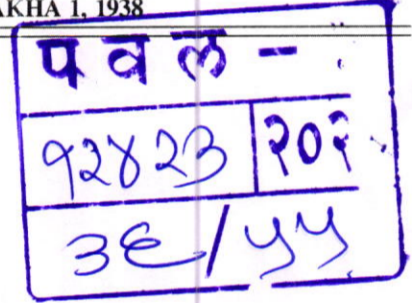 AKHA 1, 1938
पवल -
१२४२३ २०२
३६/५५